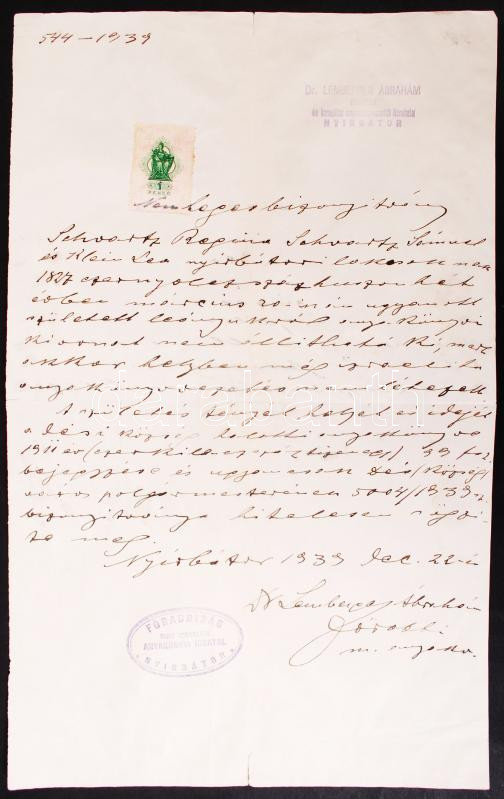 544 – 1939
Dr. LEMBERGER ÁBRAHÁM
NYIRBÁTOR
1
PENGŐ
Nemleges bizonyitvány
Schvartz Regina Schvartz Sámuel
és Klein Lea nyirbátori lakosok
1827 ezernyolcszázhuszonhét
évben március 20-
született leányukról anyakönyvi
kivonat nem állitható ki, mert
akkor helyben még izraelita
anyakönyvvezetés nem létezett
A születés tényét, helyét és idejét
a dési község halotti anyakönyve
1911 év 39 f. sz.
bejegyzése és ugyancsak Dés község
város polgármesterének 5004/1939 sz.
bizonyitványa hitelesen
meg.
Nyirbátor 1939 dec. 22-én
Dr Lemberger Ábrahám
főrabbi
darabanth
FŐRABBISÁG
ANYAKÖNYVI HIVATAL
NYIRBÁTOR